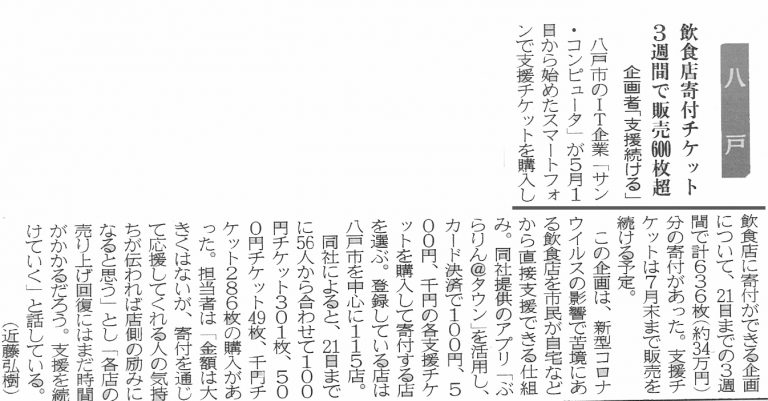 八戸
飲食店寄付チケット
3週間で販売600枚超
企画者「支援続ける」
八戸市のIT企業「サン
・コンピュータ」が5月1
日から始めたスマートフォ
ンで支援チケットを購入し
飲食店に寄付ができる企画
について、21日までの3週
間で計636枚（約34万円）
分の寄付があった。支援チ
ケットは7月末まで販売を
続ける予定。
この企画は、新型コロナ
ウイルスの影響で苦境にあ
る飲食店を市民が自宅など
から直接支援できる仕組
み。同社提供のアプリ「ぶ
らりん@タウン」を活用し、
カード決済で100円、5
00円、千円の各支援チケ
ットを購入して寄付する店
を選ぶ。登録している店は
八戸市を中心に115店。
同社によると、21日まで
に56人から合わせて100
円チケット301枚、50
0円チケット49枚、千円チ
ケット286枚の購入があ
った。担当者は「金額は大
きくはないが、寄付を通じ
て応援してくれる人の気持
ちが伝われば店側の励みに
なると思う」とし「各店の
売り上げ回復にはまだ時間
がかかるだろう。支援を続
けていく」と話している。
（近藤弘樹）